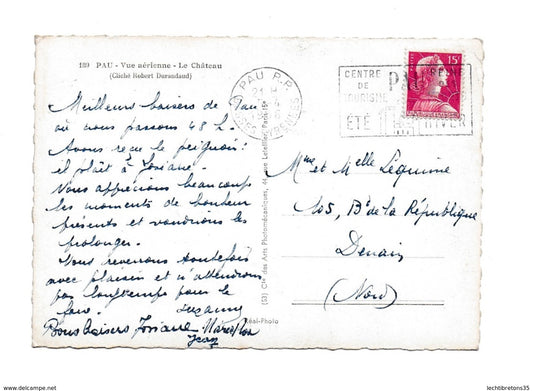 189 PAU - Vue aérienne - Le Château
(Cliché Robert Durandaud)
Meilleurs baisers de Pau
où nous passons 48 h.
Avons reçu le peignoir:
il plaît à Josiane.
Nous apprécions beaucoup
les moments de bonheur
présents et voudrions les
prolonger.
Nous reviendrons toutefois
avec plaisir et n'attendrons
pas longtemps pour le
faire.
Suzanne
Bons baisers Josiane
Jean
PAU R.P.
CENTRE
DE
TOURISME
PAU
REINE
ÉTÉ
HIVER
15F
Mme et Melle Lequime
105, Bd de la République
Denain
(Nord)
(53) Cie des Arts Photomécaniques, 44, rue Letellier, Paris
Réal-Photo
delcampe.net
lechtibretons35